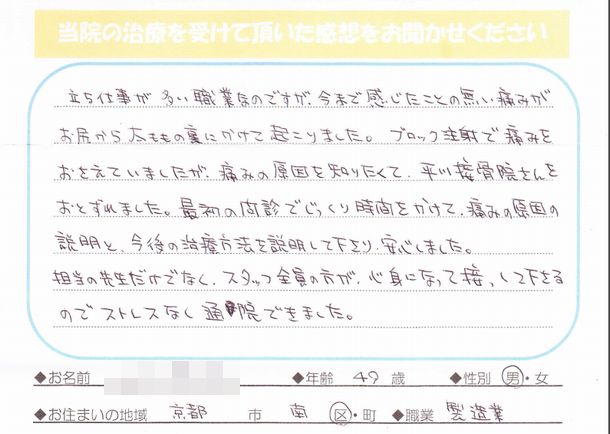 当院の治療を受けて頂いた感想をお聞かせください
立ち仕事が多い職業なのですが、今まで感じたことの無い痛みが
お尻から太ももの裏にかけて起こりました。ブロック注射で痛みを
おさえていましたが、痛みの原因を知りたくて、平川接骨院さんを
おとずれました。最初の問診でじっくり時間をかけて、痛みの原因の
説明と、今後の治療方法を説明して下さり、安心しました。
担当の先生だけでなく、スタッフ全員の方が、心身になって接っして下さる
のでストレスなく通院できました。
◆お名前 ◆年齢 49 歳 ◆性別 男・女
◆お住まいの地域 京都 市 南 区・町 ◆職業 製造業